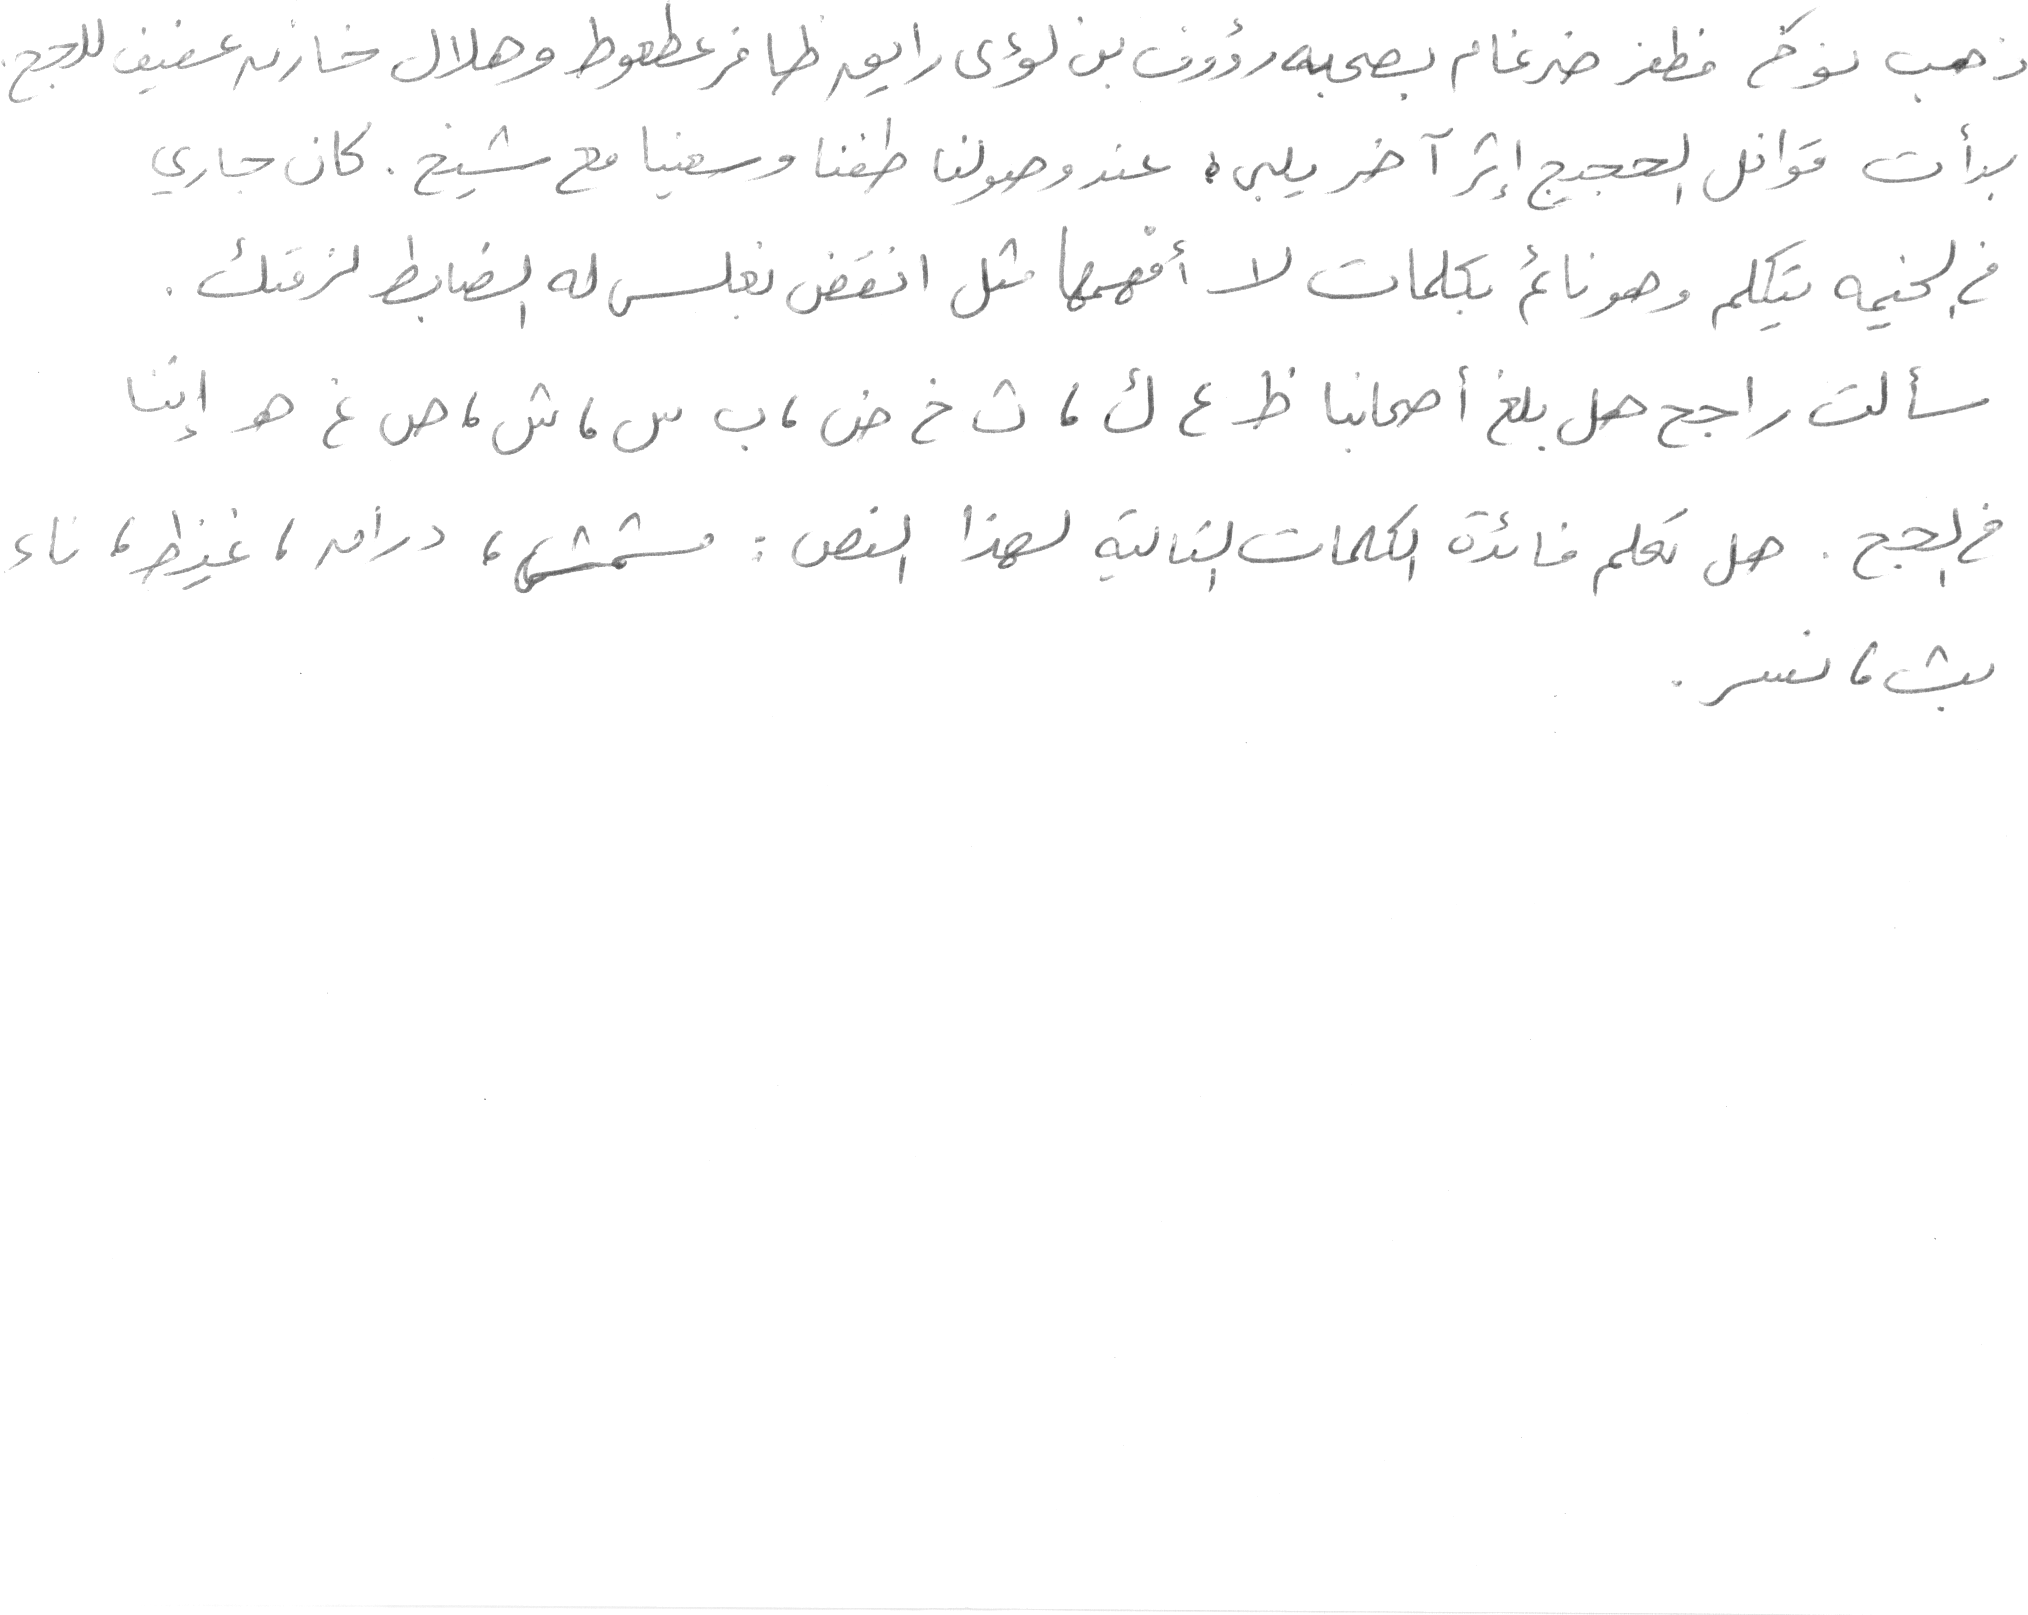 ذهب نوح مظفر ضرغام بصحبه رؤوف بن لؤى رايق ظافر عطعوط وهلال خازن عفيف للحج.
بدأت قوافل الحجيج إثر آخر يلبي، عند وصولنا طفنا وسعينا مع شيخ. كان جاري
في الخيمه يتكلم وهو نائم بكلمات لا أفهمها مثل انقض نغلس له الضابط لزقتك.
سألت راجح هل بلغ أصحابنا ظ ع ك، ث خ ض، ب س، ش، ص غ هـ إننا
في الحج. هل تعلم فائدة الكلمات التالية لهذا النص: مشمشها، درامه، غيظ، ناء
بث، نسر.